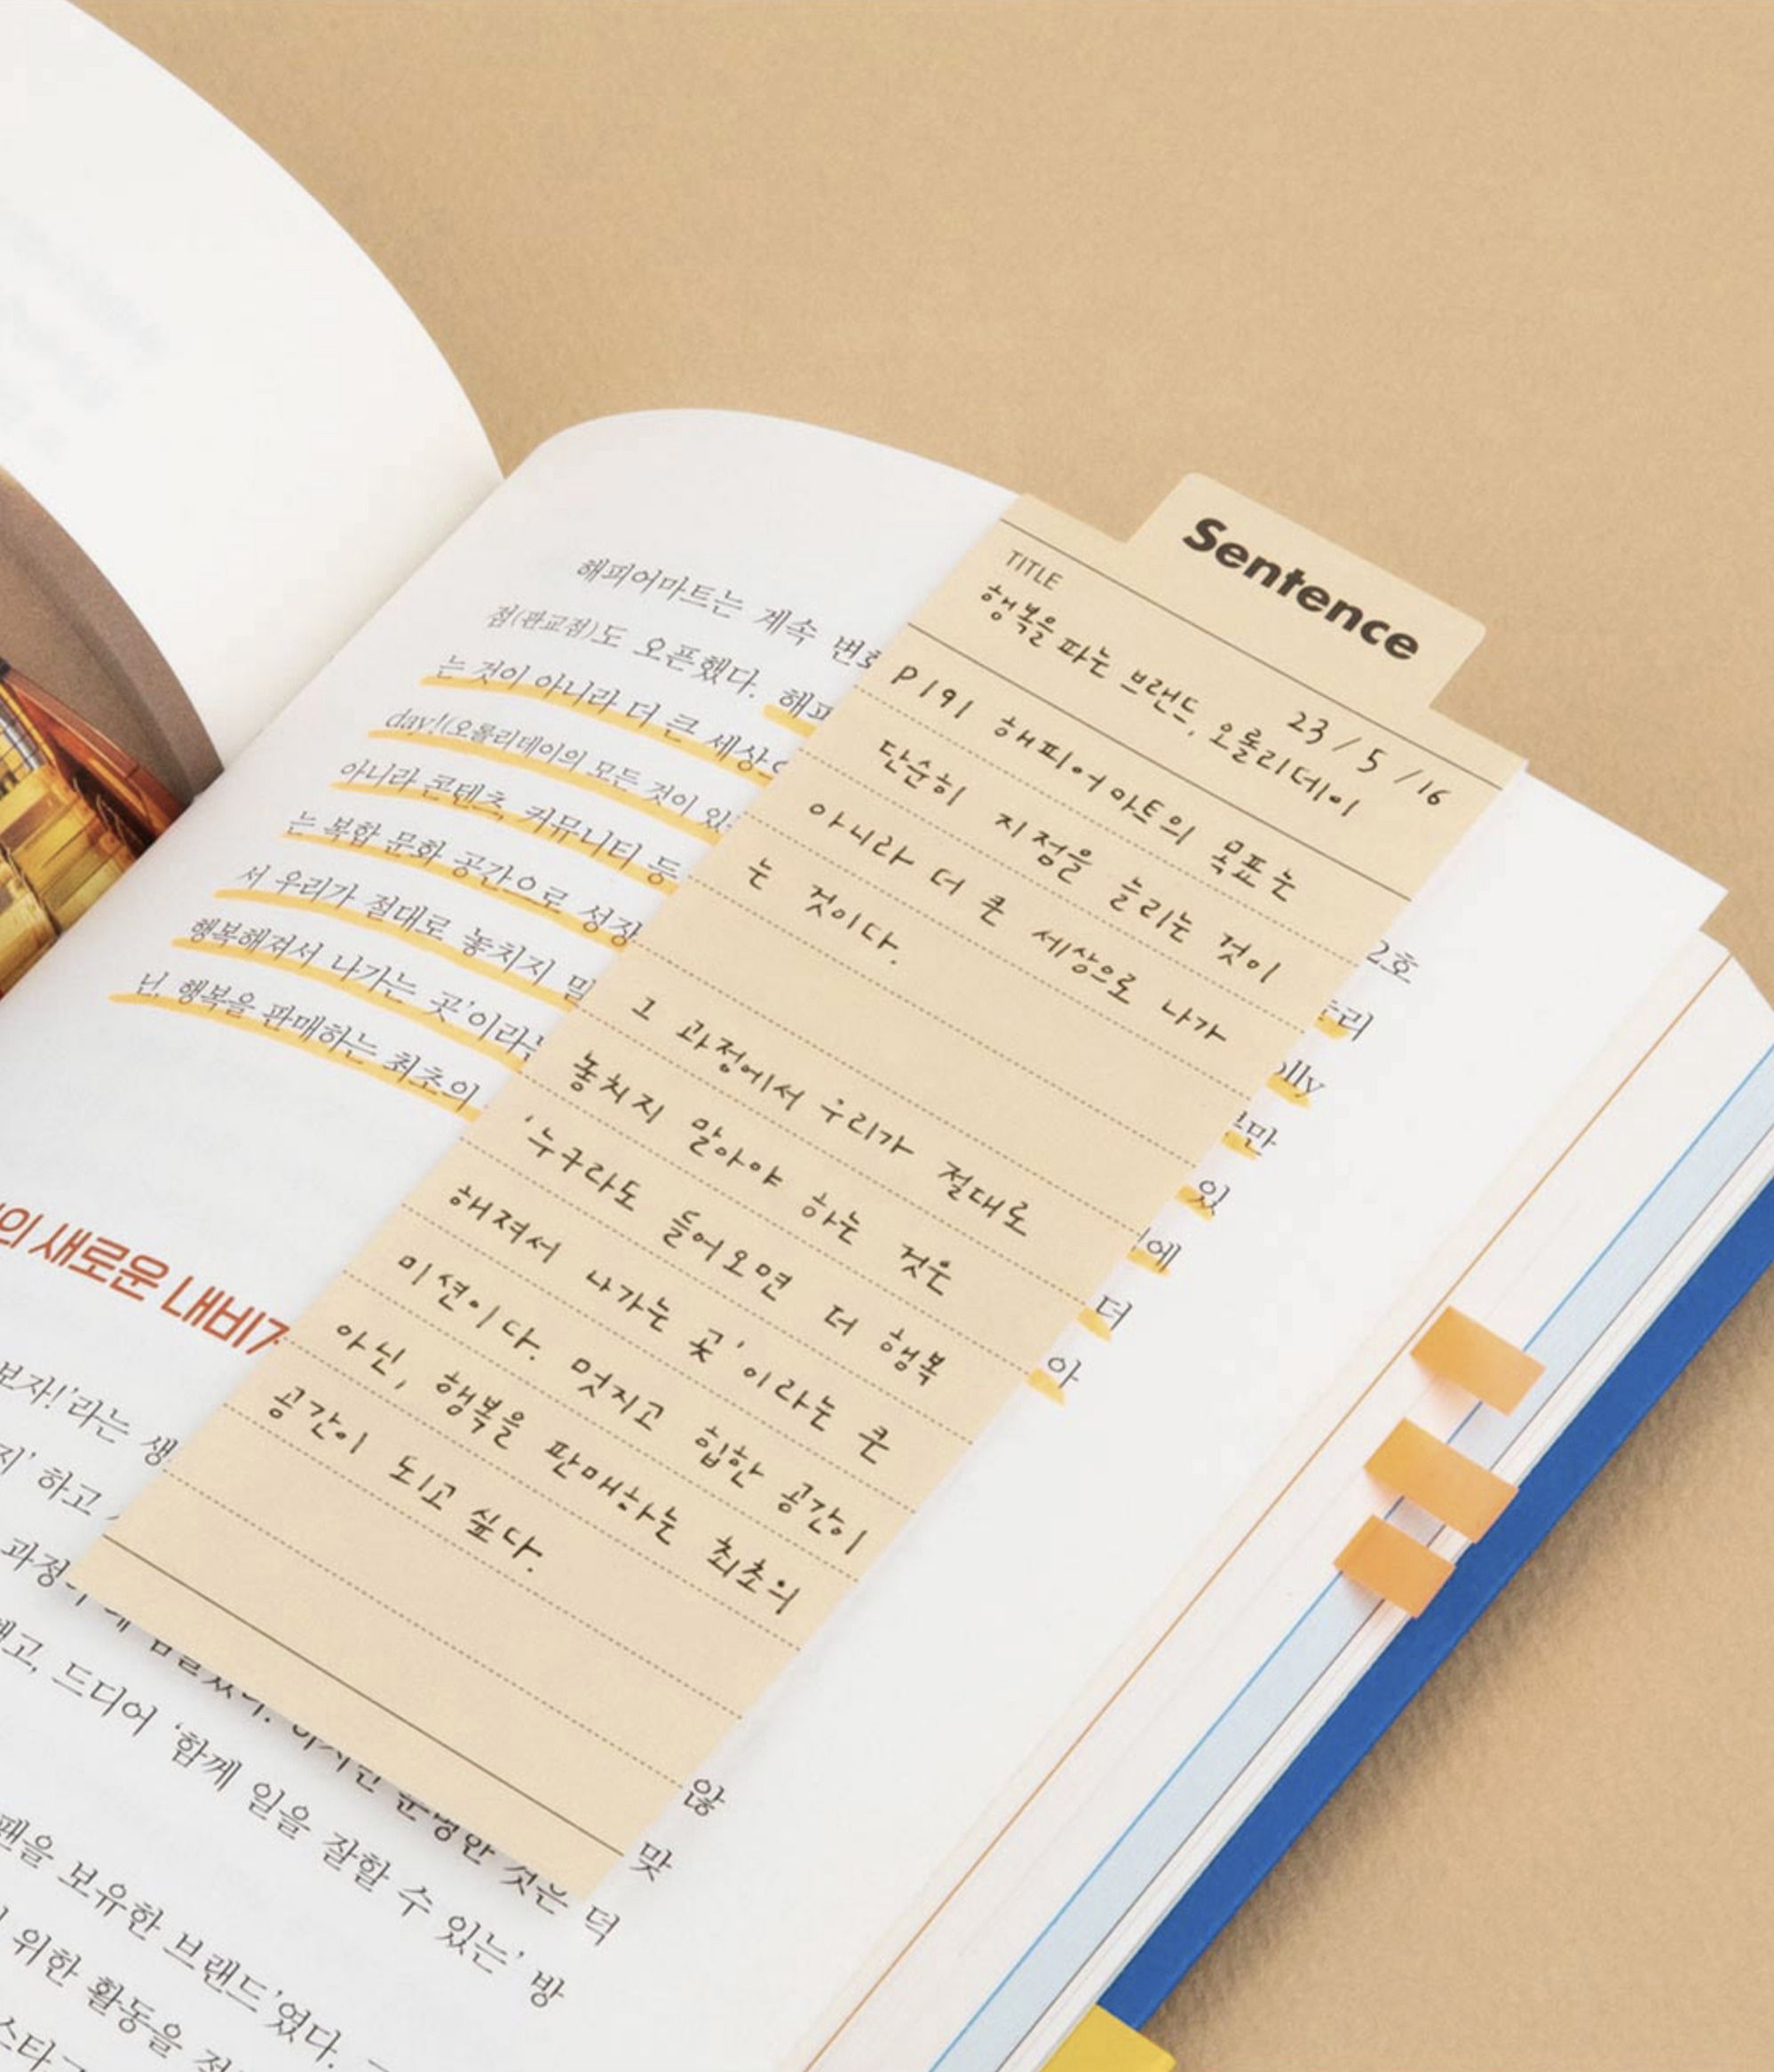 Sentence
TITLE
행복을 파는 브랜드, 오롤리데이
23/5/16
P191 해피어마트의 목표는
단순히 지점을 늘리는 것이
아니라 더 큰 세상으로 나가
는 것이다.
그 과정에서 우리가 절대로
놓치지 말아야 하는 것은
'누구라도 들어오면 더 행복
해져서 나가는 곳'이라는 큰
미션이다. 멋지고 힙한 공간이
아닌, 행복을 판매하는 최초의
공간이 되고 싶다.
해피어마트는 계속 변화 2호
점(판교점)도 오픈했다. 해피
는 것이 아니라 더 큰 세상으 olly
day!(오롤리데이의 모든 것이 있 만
아니라 콘텐츠, 커뮤니티 등 있
는 복합 문화 공간으로 성장 에
서 우리가 절대로 놓치지 말 더
행복해져서 나가는 곳'이라는 아
닌, 행복을 판매하는 최초의
의 새로운 내비
보자!'라는 생
지' 하고
과정 않
고, 드디어 '함께 일을 잘할 수 있는' 방
맞
분명한 것은 덕
팬을 보유한 브랜드'였다.
위한 활동을
스타